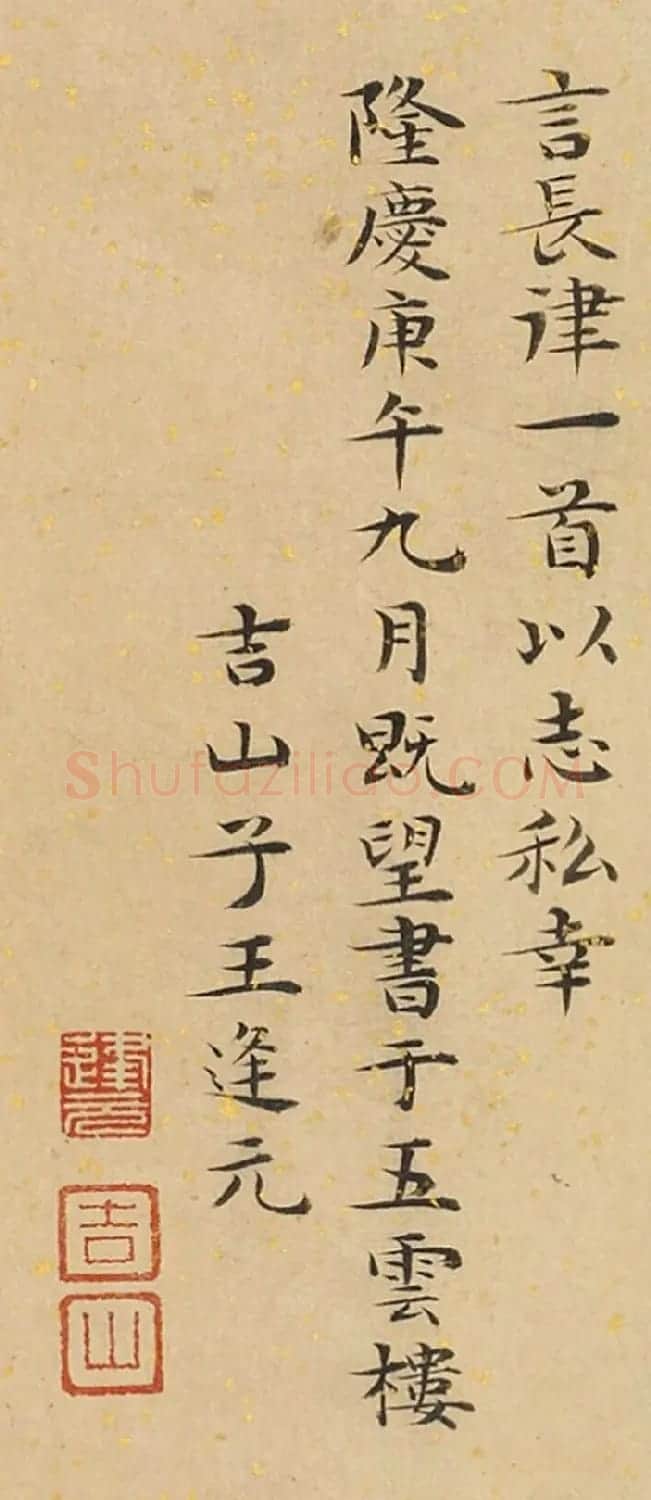 言長律一首以志私幸
隆慶庚午九月既望書于五雲樓
吉山子王逢元
逢元
吉
山
Shufaziliao.COM